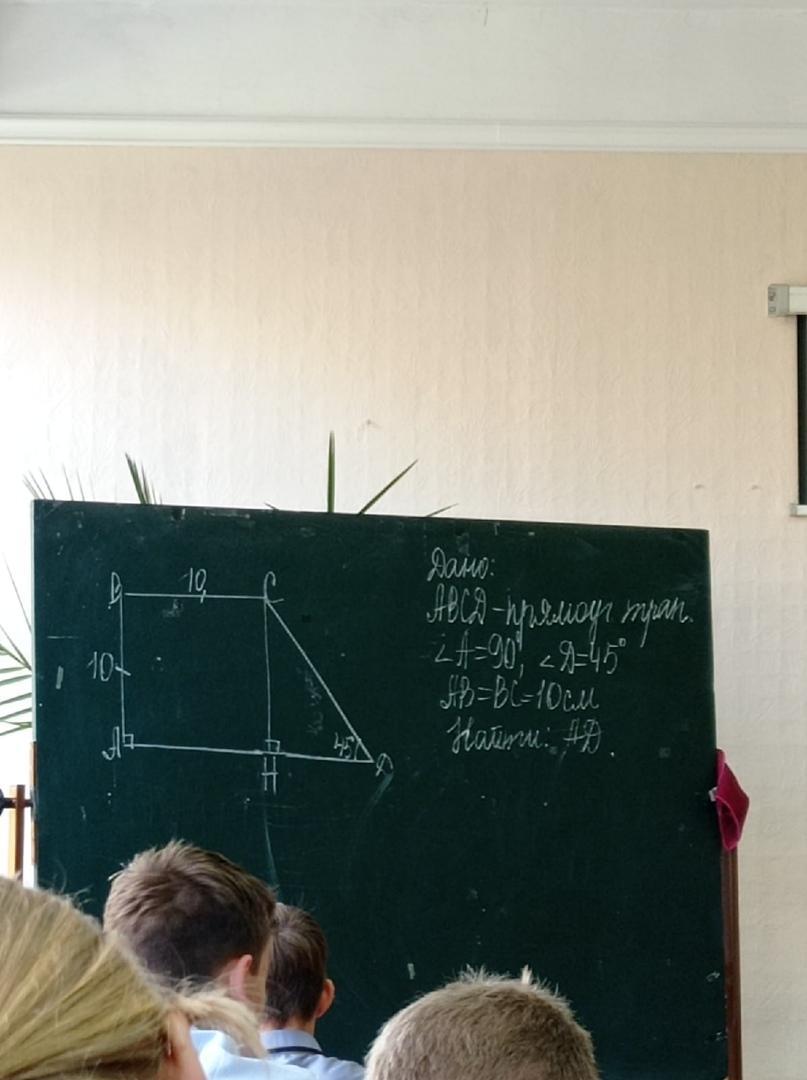 B 10 C
10
A
H
45°
D
Дано:
ABCD - прямоуг трап.
∠A=90°, ∠D=45°
AB=BC=10см
Найти: AD.